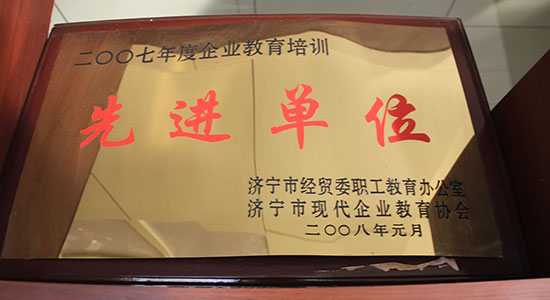 二〇〇七年度企业教育培训
先进单位
济宁市经贸委职工教育办公室
济宁市现代企业教育协会
二〇〇八年元月